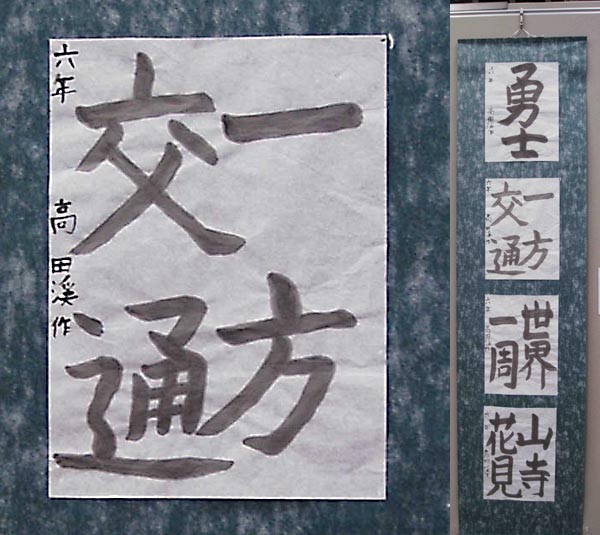 一方
交通
六年 高田渓作
勇士
一方
交通
世界
一周
山寺
花見